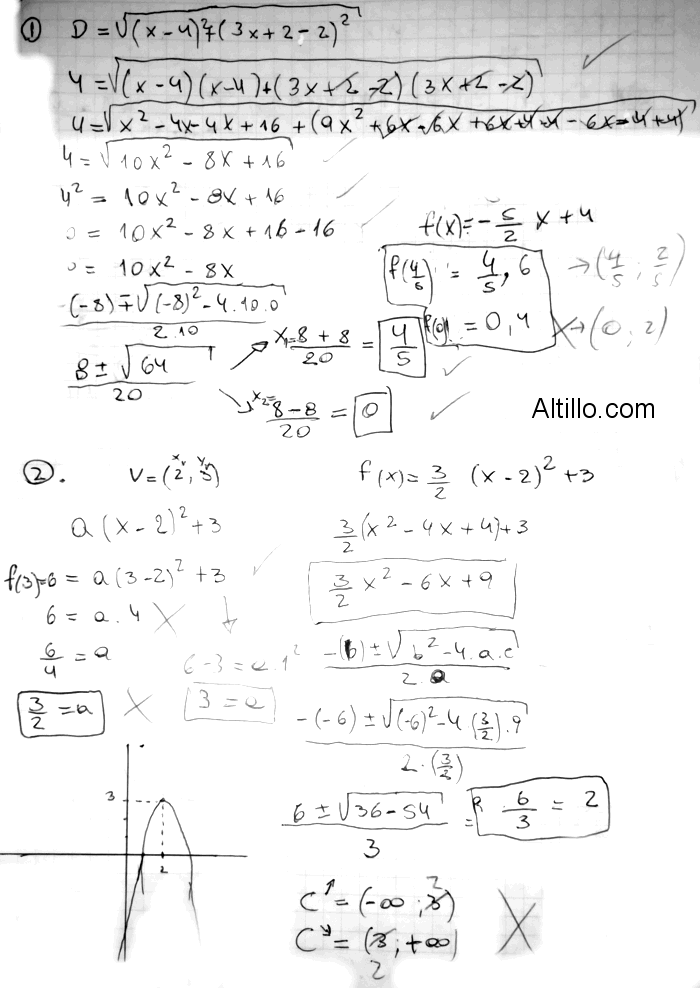 ① D = √(x-4)²+(3x+2-2)²
4 = √(x-4)(x-4)+(3x+2-2)(3x+2-2)
4 = √x²-4x-4x+16+(9x²+6x-6x+6x+4-4-6x-4+4)
4 = √10x²-8x+16
4² = 10x²-8x+16
0 = 10x²-8x+16-16
0 = 10x²-8x
(-8)∓√(-8)²-4.10.0 / 2.10
8±√64 / 20
x₁= 8+8 / 20 = 4/5
x₂= 8-8 / 20 = 0
f(x)=-5/2 x+4
f(4/5) = 4/5, 6 → (4/5; 2/5)
f(0) = 0,4 X → (0; 2)
Altillo.com
②. V=(2, 3)
xv yv
a(x-2)²+3
f(3)=6 = a(3-2)²+3
6 = a.4 X ↓
6/4 = a
6-3 = a.1²
3/2 = a X
3 = a
3
2
f(x)= 3/2 (x-2)²+3
3/2(x²-4x+4)+3
3/2 x²-6x+9
-(b)±√b²-4.a.c / 2.a
-(-6)±√(-6)²-4(3/2).9 / 2.(3/2)
6±√36-54 / 3 = 6/3 = 2
C↑ = (-∞; 2)
C↓ = (2; +∞)
X